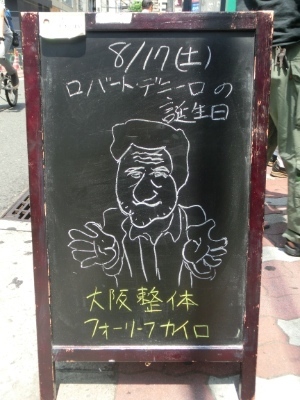 8/17(土)
ロバート・デニーロの
誕生日
大阪整体
フォーリーフカイロ